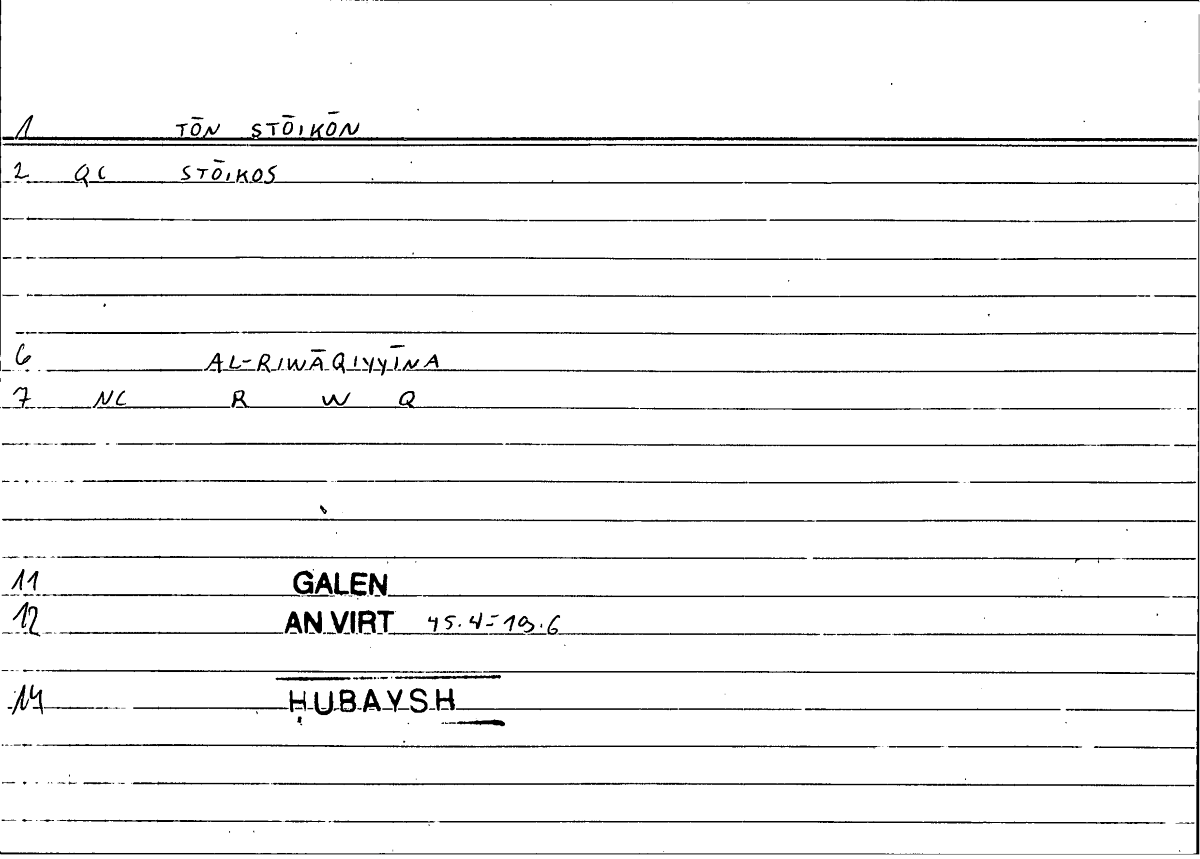 1 TŌN STŌIKŌN
2 QC STŌIKOS
6 AL-RIWĀQIYYĪNA
7 NC R W Q
11 GALEN
12 AN VIRT 45.4=19.6
14 ḤUBAYSH